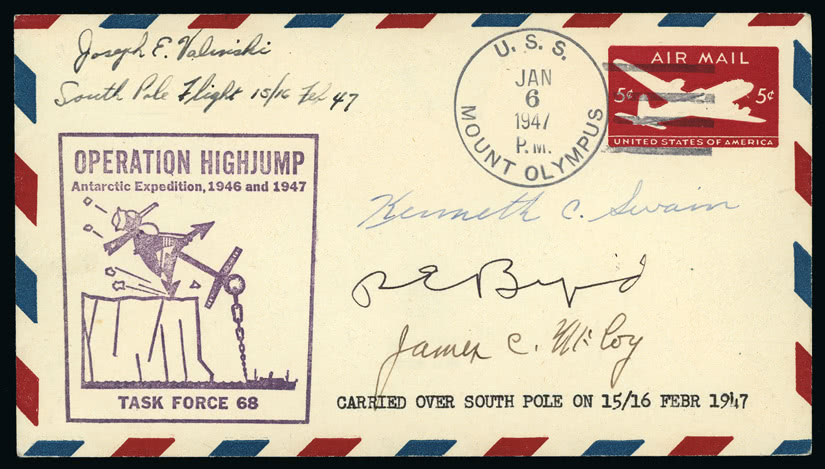 Joseph E. Valinski
South Pole Flight 15/16 Feb 47
U. S. S.
JAN
6
1947
P. M.
MOUNT OLYMPUS
AIR MAIL
5¢ 5¢
UNITED STATES OF AMERICA
OPERATION HIGHJUMP
Antarctic Expedition, 1946 and 1947
TASK FORCE 68
Kenneth C. Swain
R E Byrd
James C. McCoy
CARRIED OVER SOUTH POLE ON 15/16 FEBR 1947